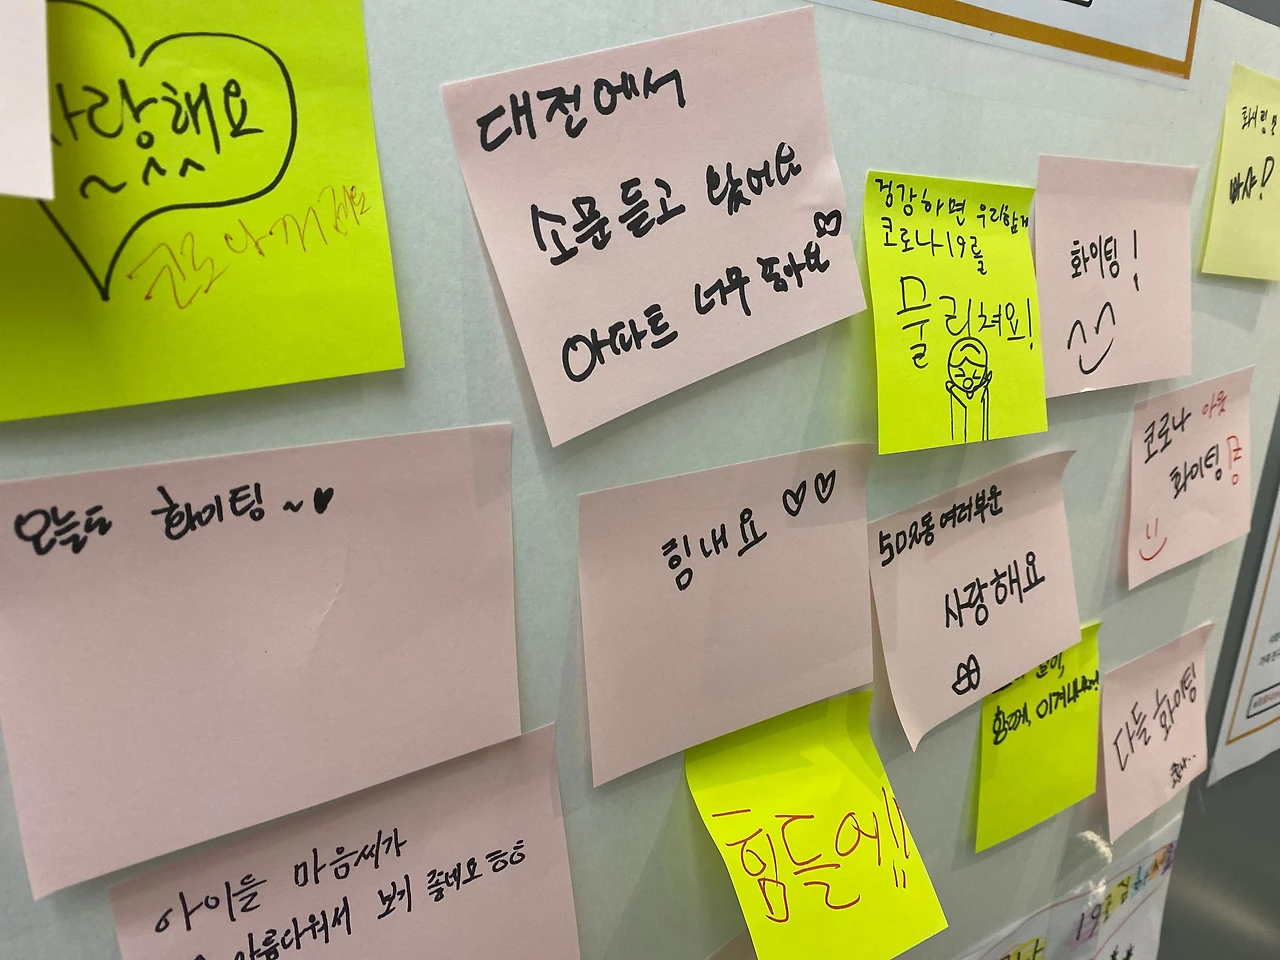 사랑해요
코로나 꺼져
대전에서
소문듣고 왔어요
아파트 너무 좋아요
건강하면 우리함께
코로나19를
물리쳐요!
화이팅!
빠샤!
코로나 아웃
화이팅!
오늘도 화이팅~
힘내요
502동 여러분
사랑해요
함께, 이겨내
다들 화이팅
힘들어!!
아이들 마음씨가
아름다워서 보기 좋네요 ㅎㅎ
19